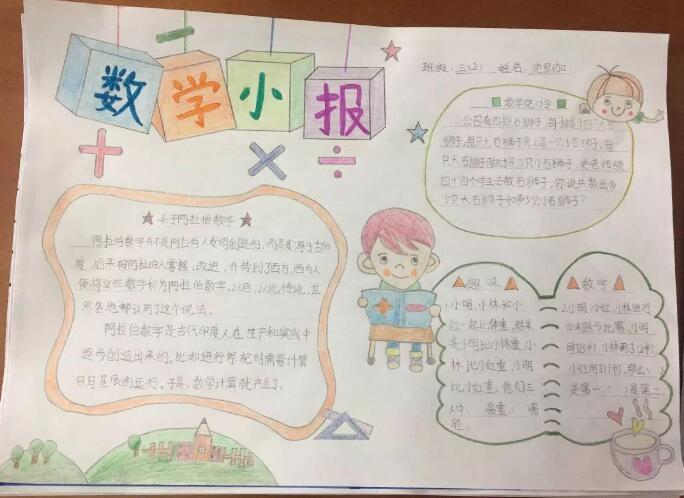 数学小报
班级:三(2) 姓名:沈罗泇
数学窍门今
公园有四排石狮子,每排是十四只大石
狮子,每只大石狮子背上是一只小石狮子,每
只大石狮子脚边是四只小石狮子,史老师领
四十四个学生去数石狮子,你说共数出多
少只大石狮子和多少只小石狮子?
关于阿拉伯数字
阿拉伯数字并不是阿拉伯人发明创造的,而是发源于古印
度,后来被阿拉伯人掌握、改进,并传到了西方,西方人
便将这些数字称为阿拉伯数字。以后,以讹传讹,世
界各地都认同了这个说法。
阿拉伯数字是古代印度人在生产和实践中
逐步创造出来的。比如进行祭祀时需要计算
日月星辰的运行。于是,数学计算就产生了。
趣味
1.小明,小林和小
红一起比体重,结果
是小明比小林重,小
林比小红重,小明
比小红重。他们三
人中( )最重,( )最
轻。
数学
2.小明、小红、小林进行
跑步比赛,小明
小林用了12秒,
小红用了11秒,那么( )
是第一,( )是第二